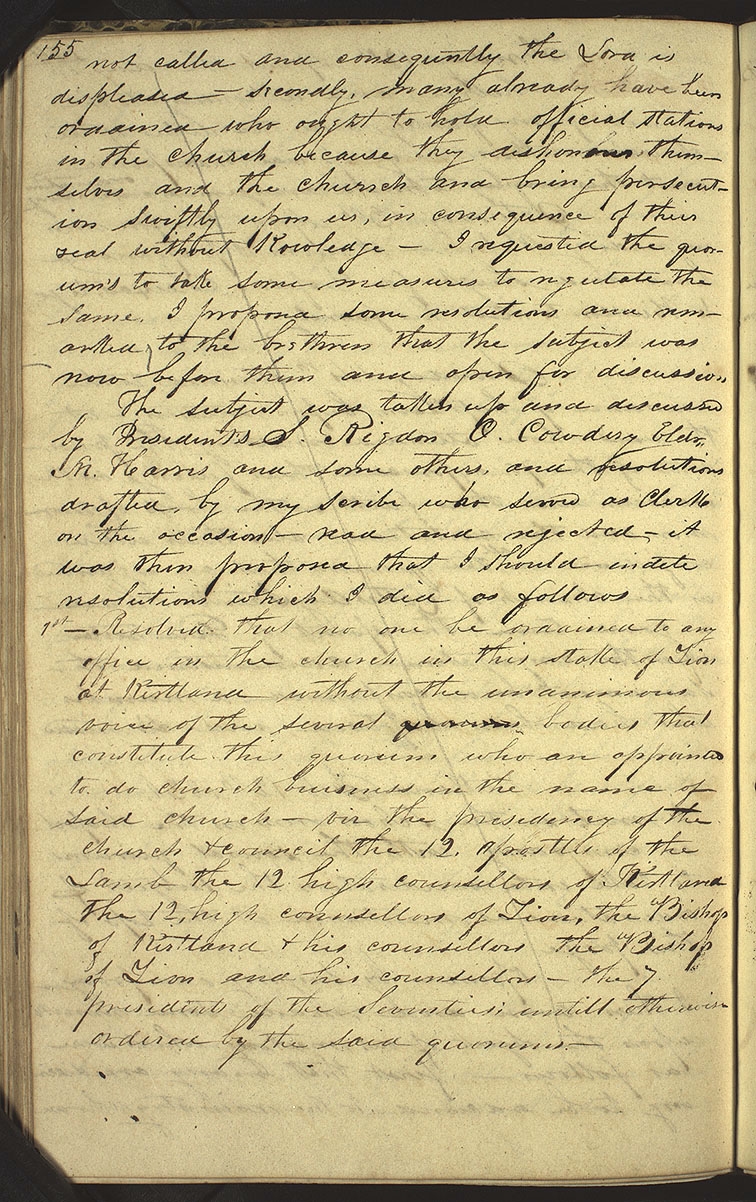 155
not called and consequently the Lord is
displeased — secondly, many already have been
ordained who ought to hold official stations
in the church because they dishonour them-
selves and the church and bring persecut-
ion swiftly upon us, in consequence of their
zeal without Kowledge — I requested the quor-
um's to take some measures to regulate the
same. I proposed some resolutions and rem-
arked to the brethren that the subject was
now before them and open for discussion
The subject was taken up and discussed
by Presidents S. Rigdon O. Cowdery Eldr.
M. Harris and some others, and resolutions
drafted, by my scribe who served as Clerk
on the occasion — read and rejected — it
was then proposed that I should indite
resolutions which I did as follows
1st — Resolved that no one be ordained to any
office in the church in this stake of Zion
at Kirtland without the unanimous
voice of the several quorums bodies that
constitute this quorum who are appointed
to do church buisiness in the name of
said church — viz the presidency of the
church & council the 12. apostles of the
Lamb the 12 high counsellors of Kirtland
the 12, high counsellors of Zion, the Bishop
of Kirtland & his counsellors the Bishop
of Zion and his counsellors — the 7
presidents of the Seventies; untill otherwise
ordered by the said quorums —